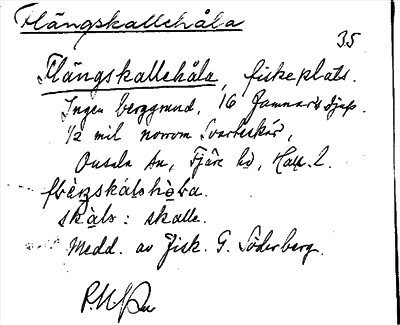 Flängskallehåla
35
Flängskallehåla, fiskeplats.
Ingen berggrund, 16 famnars djup.
1/2 mil norrom Svarteskär,
Onsala sn, Fjäre hd, Hall. l.
skàls : skalle.
Medd. av fisk. G. Söderberg.